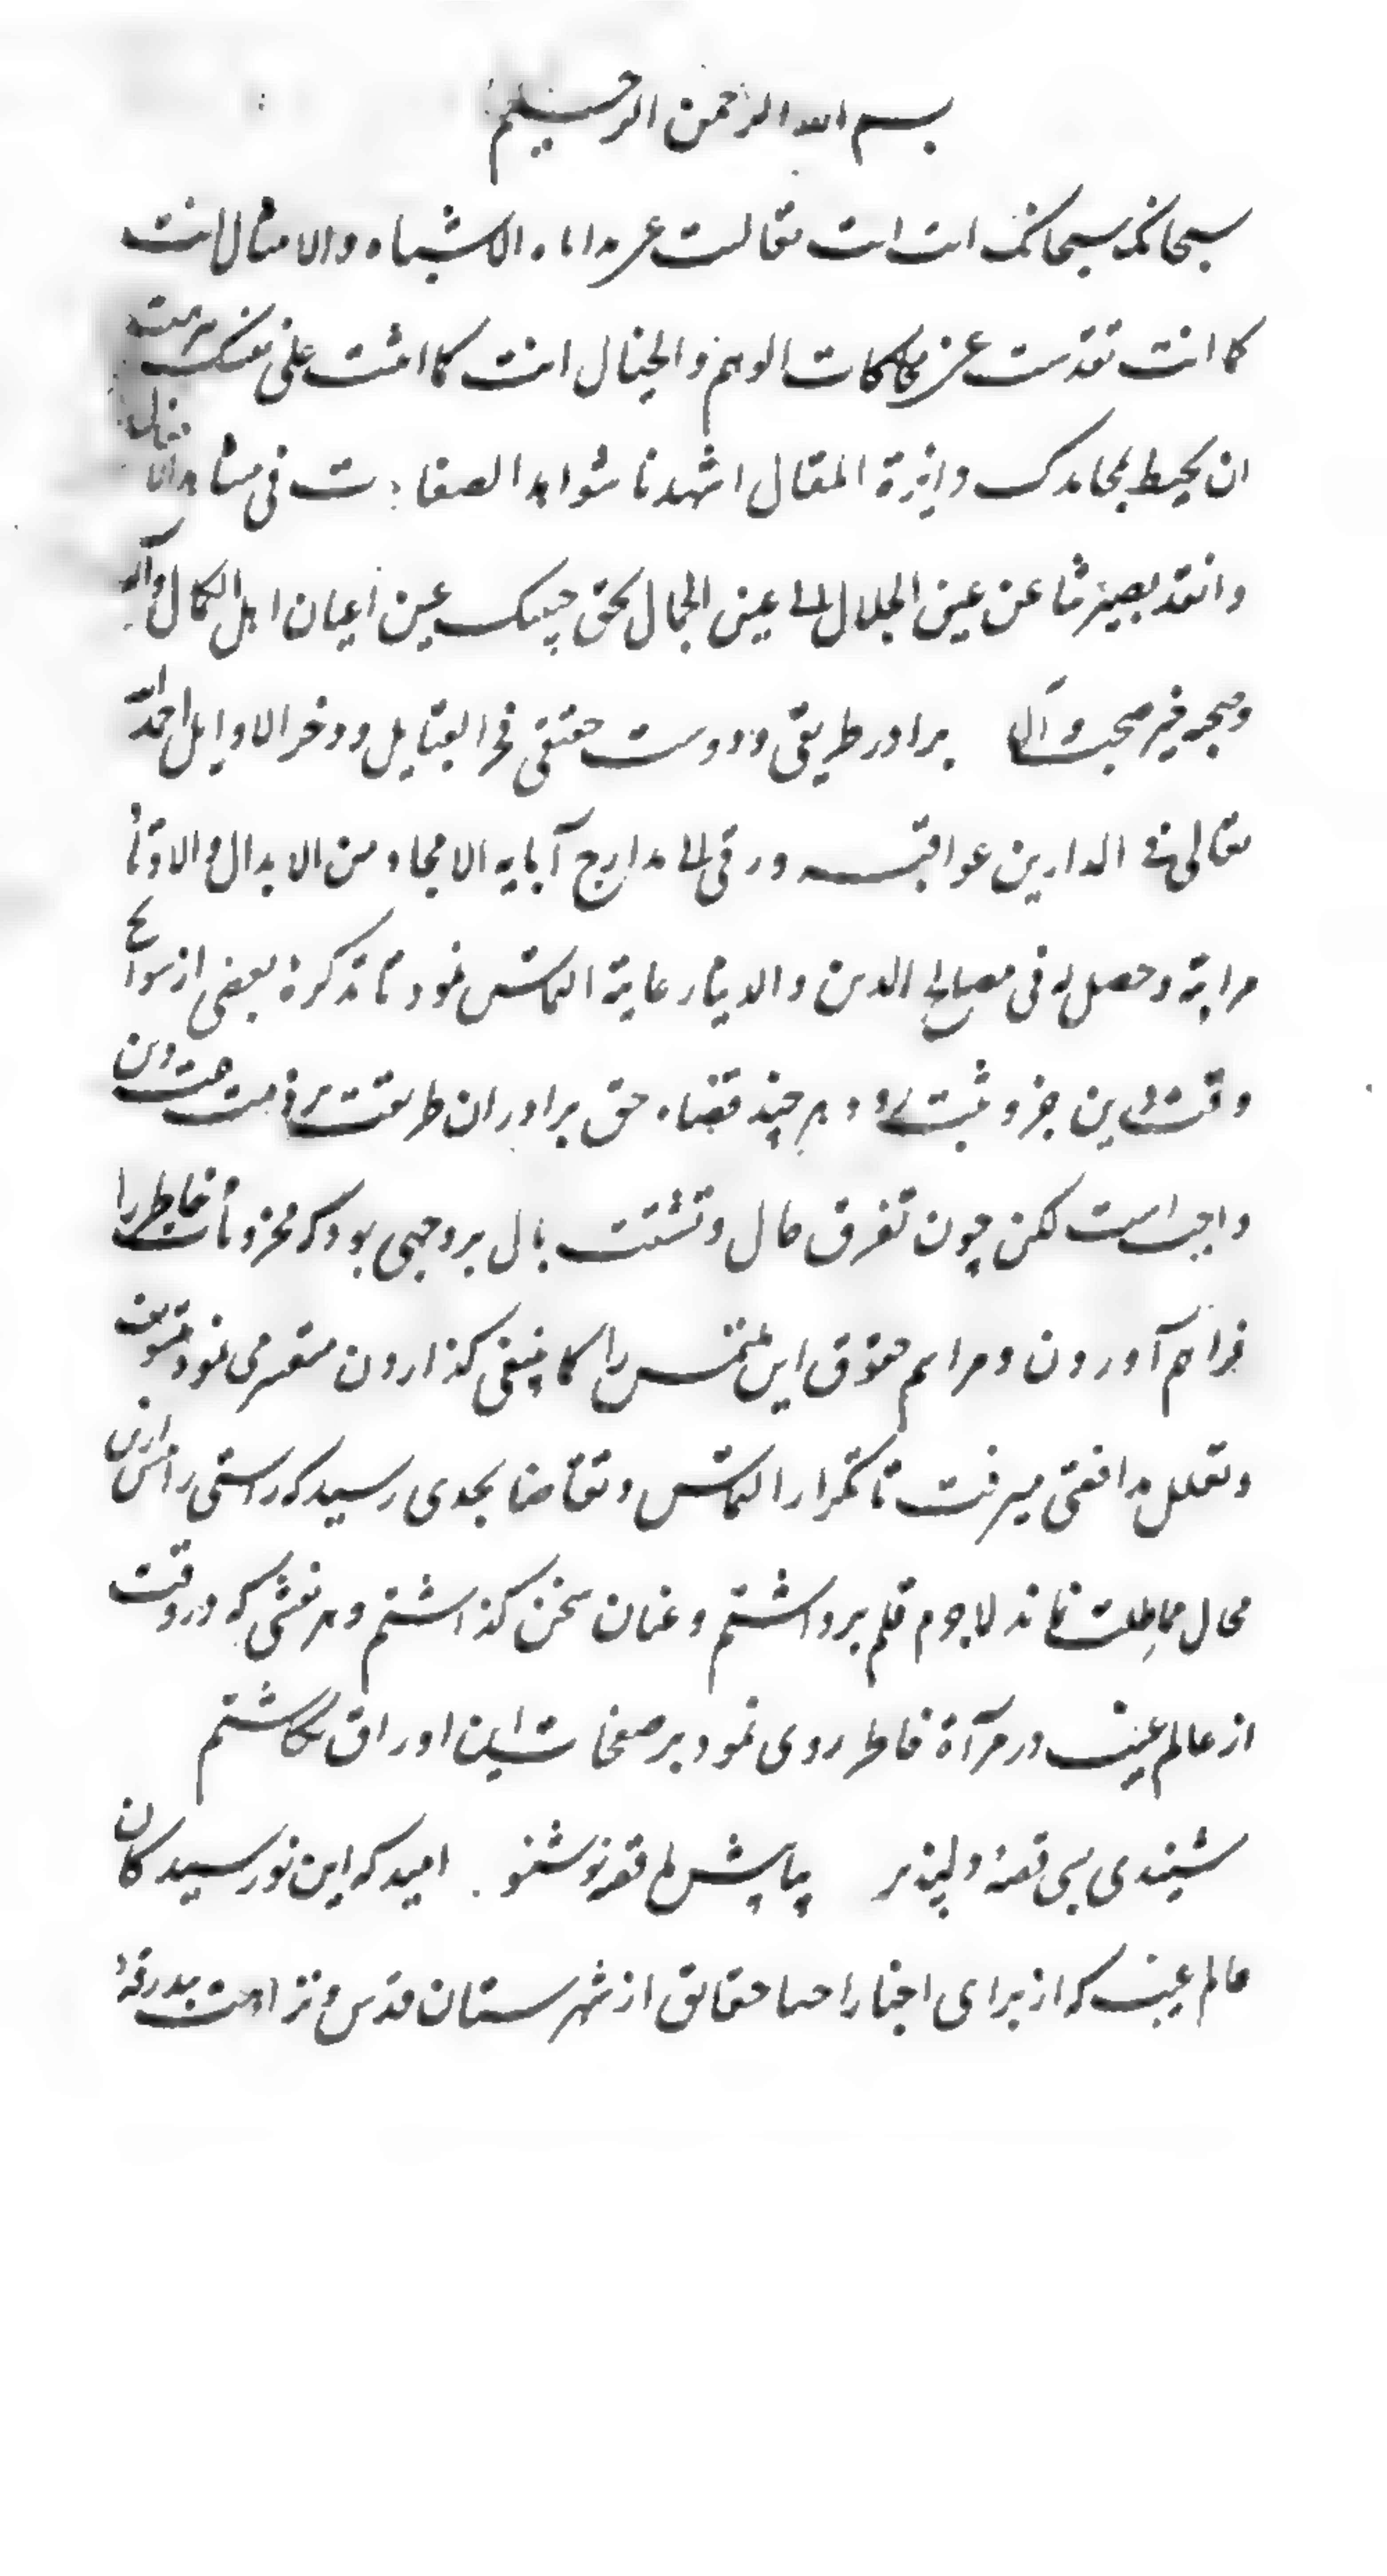 بسم الله الرحمن الرحیم
سبحانک سبحانک انت انت تعالیت عن مداناه الاشباه والامثال انت
کما انت تقدست عن محاکات الوهم والخیال انت کما اثنیت علی نفسک
ان یحیط بمحامدک دایرة المقال اشهدنا شواهد الصفات فی
وانقذ بصیرتنا عن عین الجلال الی عین الجمال بحق حبیبک عین اعیان اهل الکمال وآله
وصحبه خیر صحب وآل برادر طریقی و دوست حقیقی فخر القبایل و ذخر الاوایل احمد الله
تعالی فی الدارین عواقبه ورقی الی مدارج آبایه الامجاد من الابدال والاوتاد
مراتبه وحصل له فی مصالح الدین والدنیا التماس نمود تا تذکرهٔ بعضی از سوانح
وقت درین جزو ثبت و هر چند قضاء حق برادران طریقت بر ذمت
واجب است لکن چون تفرق حال و تشتت بال بر وجهی بود که مخزونات خاطر را
فراهم آوردن و مراسم حقوق این ملتمس را کما ینبغی گذاردن متعسر می نمود بتسویف
و تعلل مدافعتی میرفت تا تکرار التماس و تقاضا بحدی رسید که راستی را بیش ازین
محال مماطلت نماند لاجرم قلم برداشتم و عنان سخن گذاشتم و هر نقشی که در وقت
از عالم غیب در مرآة خاطر روی نمود بر صفحات این اوراق نگاشتم
شنیدی بسی قصهٔ دلپذیر بیا پیش ما قصه نو شنو امید که این نورسیدکان
عالم غیب که از برای اخبار حقایق از شهرستان قدس و نزاهت بدرقهٔ